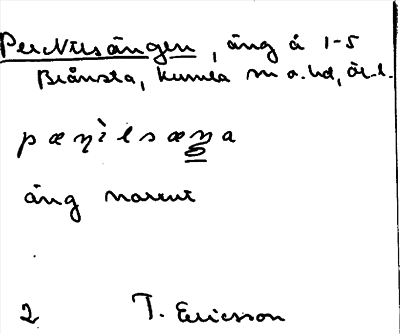 PerNilsängen, äng å 1-5
Brånsta, Kumla sn o. hd, Ör. l.
äng norrut
2 T. Ericsson